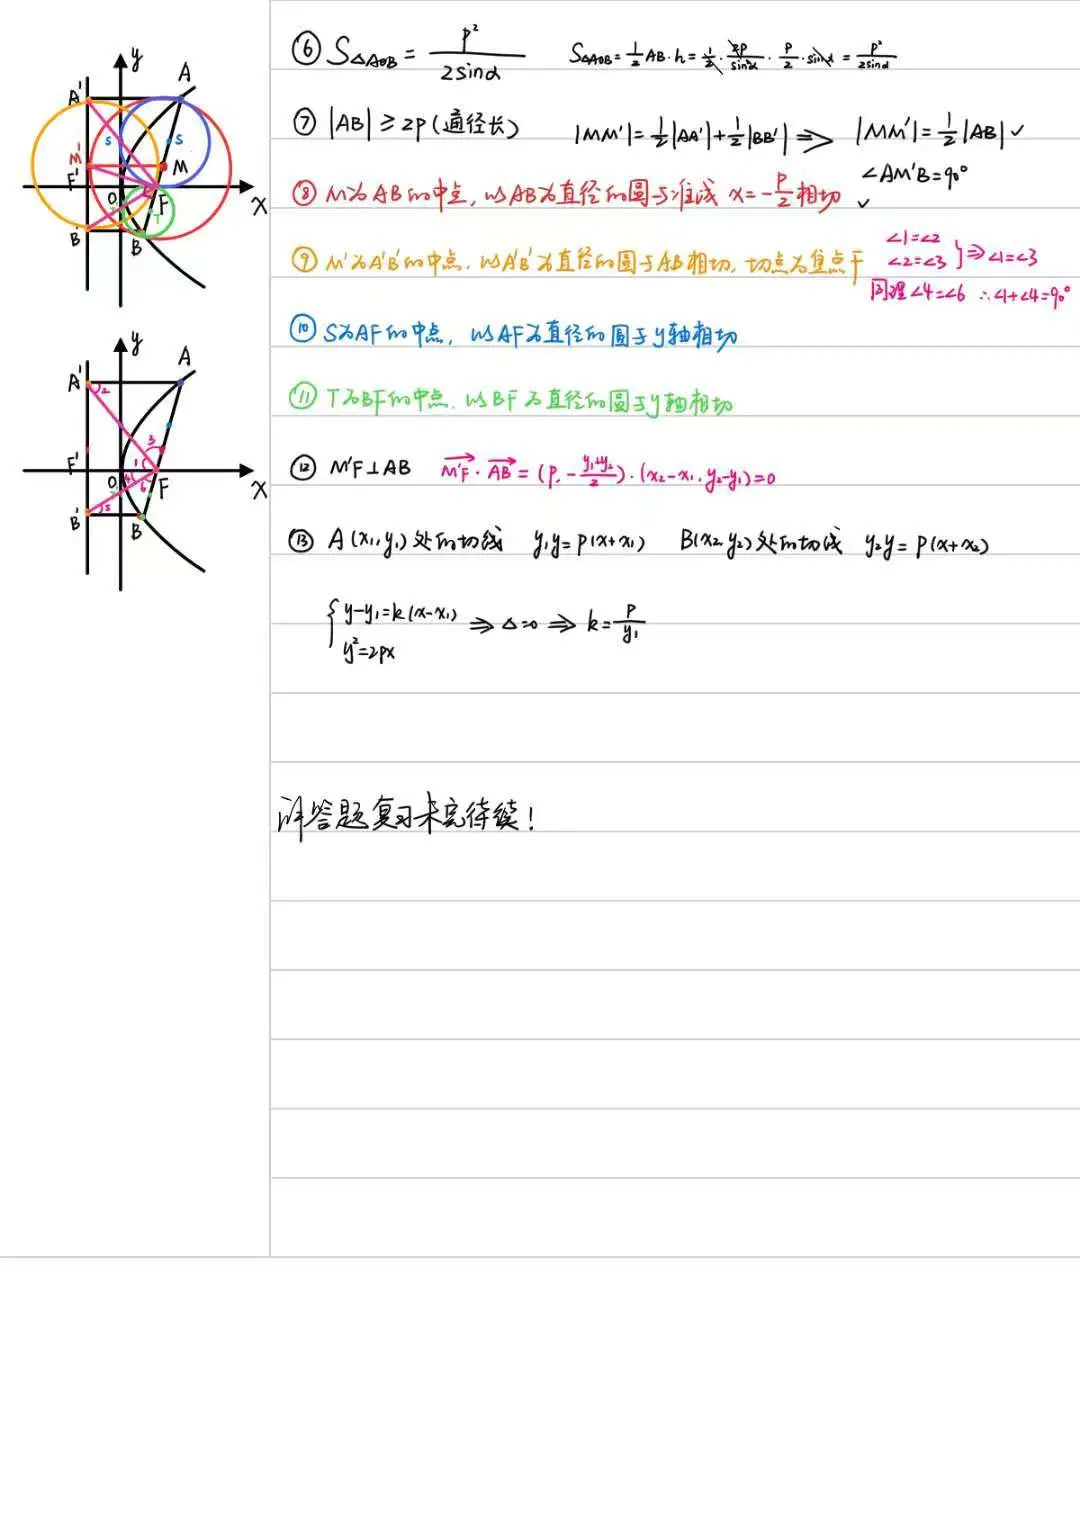 y
A
A'
S
S
M'
M
F'
O
F
x
T
B'
B
y
A
A'
2
3
F'
1
O
4
F
x
6
5
B'
B
⑥ S△AOB = p²/2sinα  S△AOB = 1/2 AB·h = 1/2 · 2p/sin²α · p/2 · sinα = p²/2sinα
⑦ |AB| ≥ 2p (通径长)  |MM'| = 1/2|AA'| + 1/2|BB'| ⇒ |MM'| = 1/2|AB| ✓
∠AM'B=90°
⑧ M为AB的中点, 以AB为直径的圆与准线 x = -p/2 相切 ✓
⑨ M'为A'B'的中点, 以A'B'为直径的圆与AB相切, 切点为焦点F
∠1=∠2
∠2=∠3 } ⇒ ∠1=∠3
同理∠4=∠6 ∴∠1+∠4=90°
⑩ S为AF的中点, 以AF为直径的圆与y轴相切
⑪ T为BF的中点, 以BF为直径的圆与y轴相切
⑫ M'F⊥AB  M'F · AB = (p, -y₁+y₂/2)·(x₂-x₁, y₂-y₁)=0
⑬ A(x₁,y₁)处的切线 y₁y=p(x+x₁)  B(x₂,y₂)处的切线 y₂y=p(x+x₂)
{ y-y₁=k(x-x₁) ⇒ △=0 ⇒ k=p/y₁
y²=2px
解答题复习未完待续!